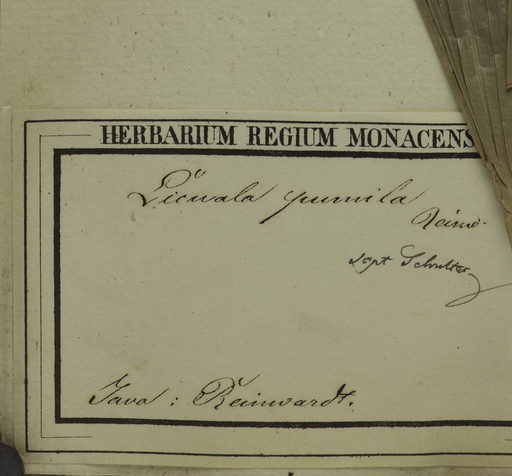 HERBARIUM REGIUM MONACENS
Licuala pumila
Reinw.
sept Schultes
Java : Reinwardt.